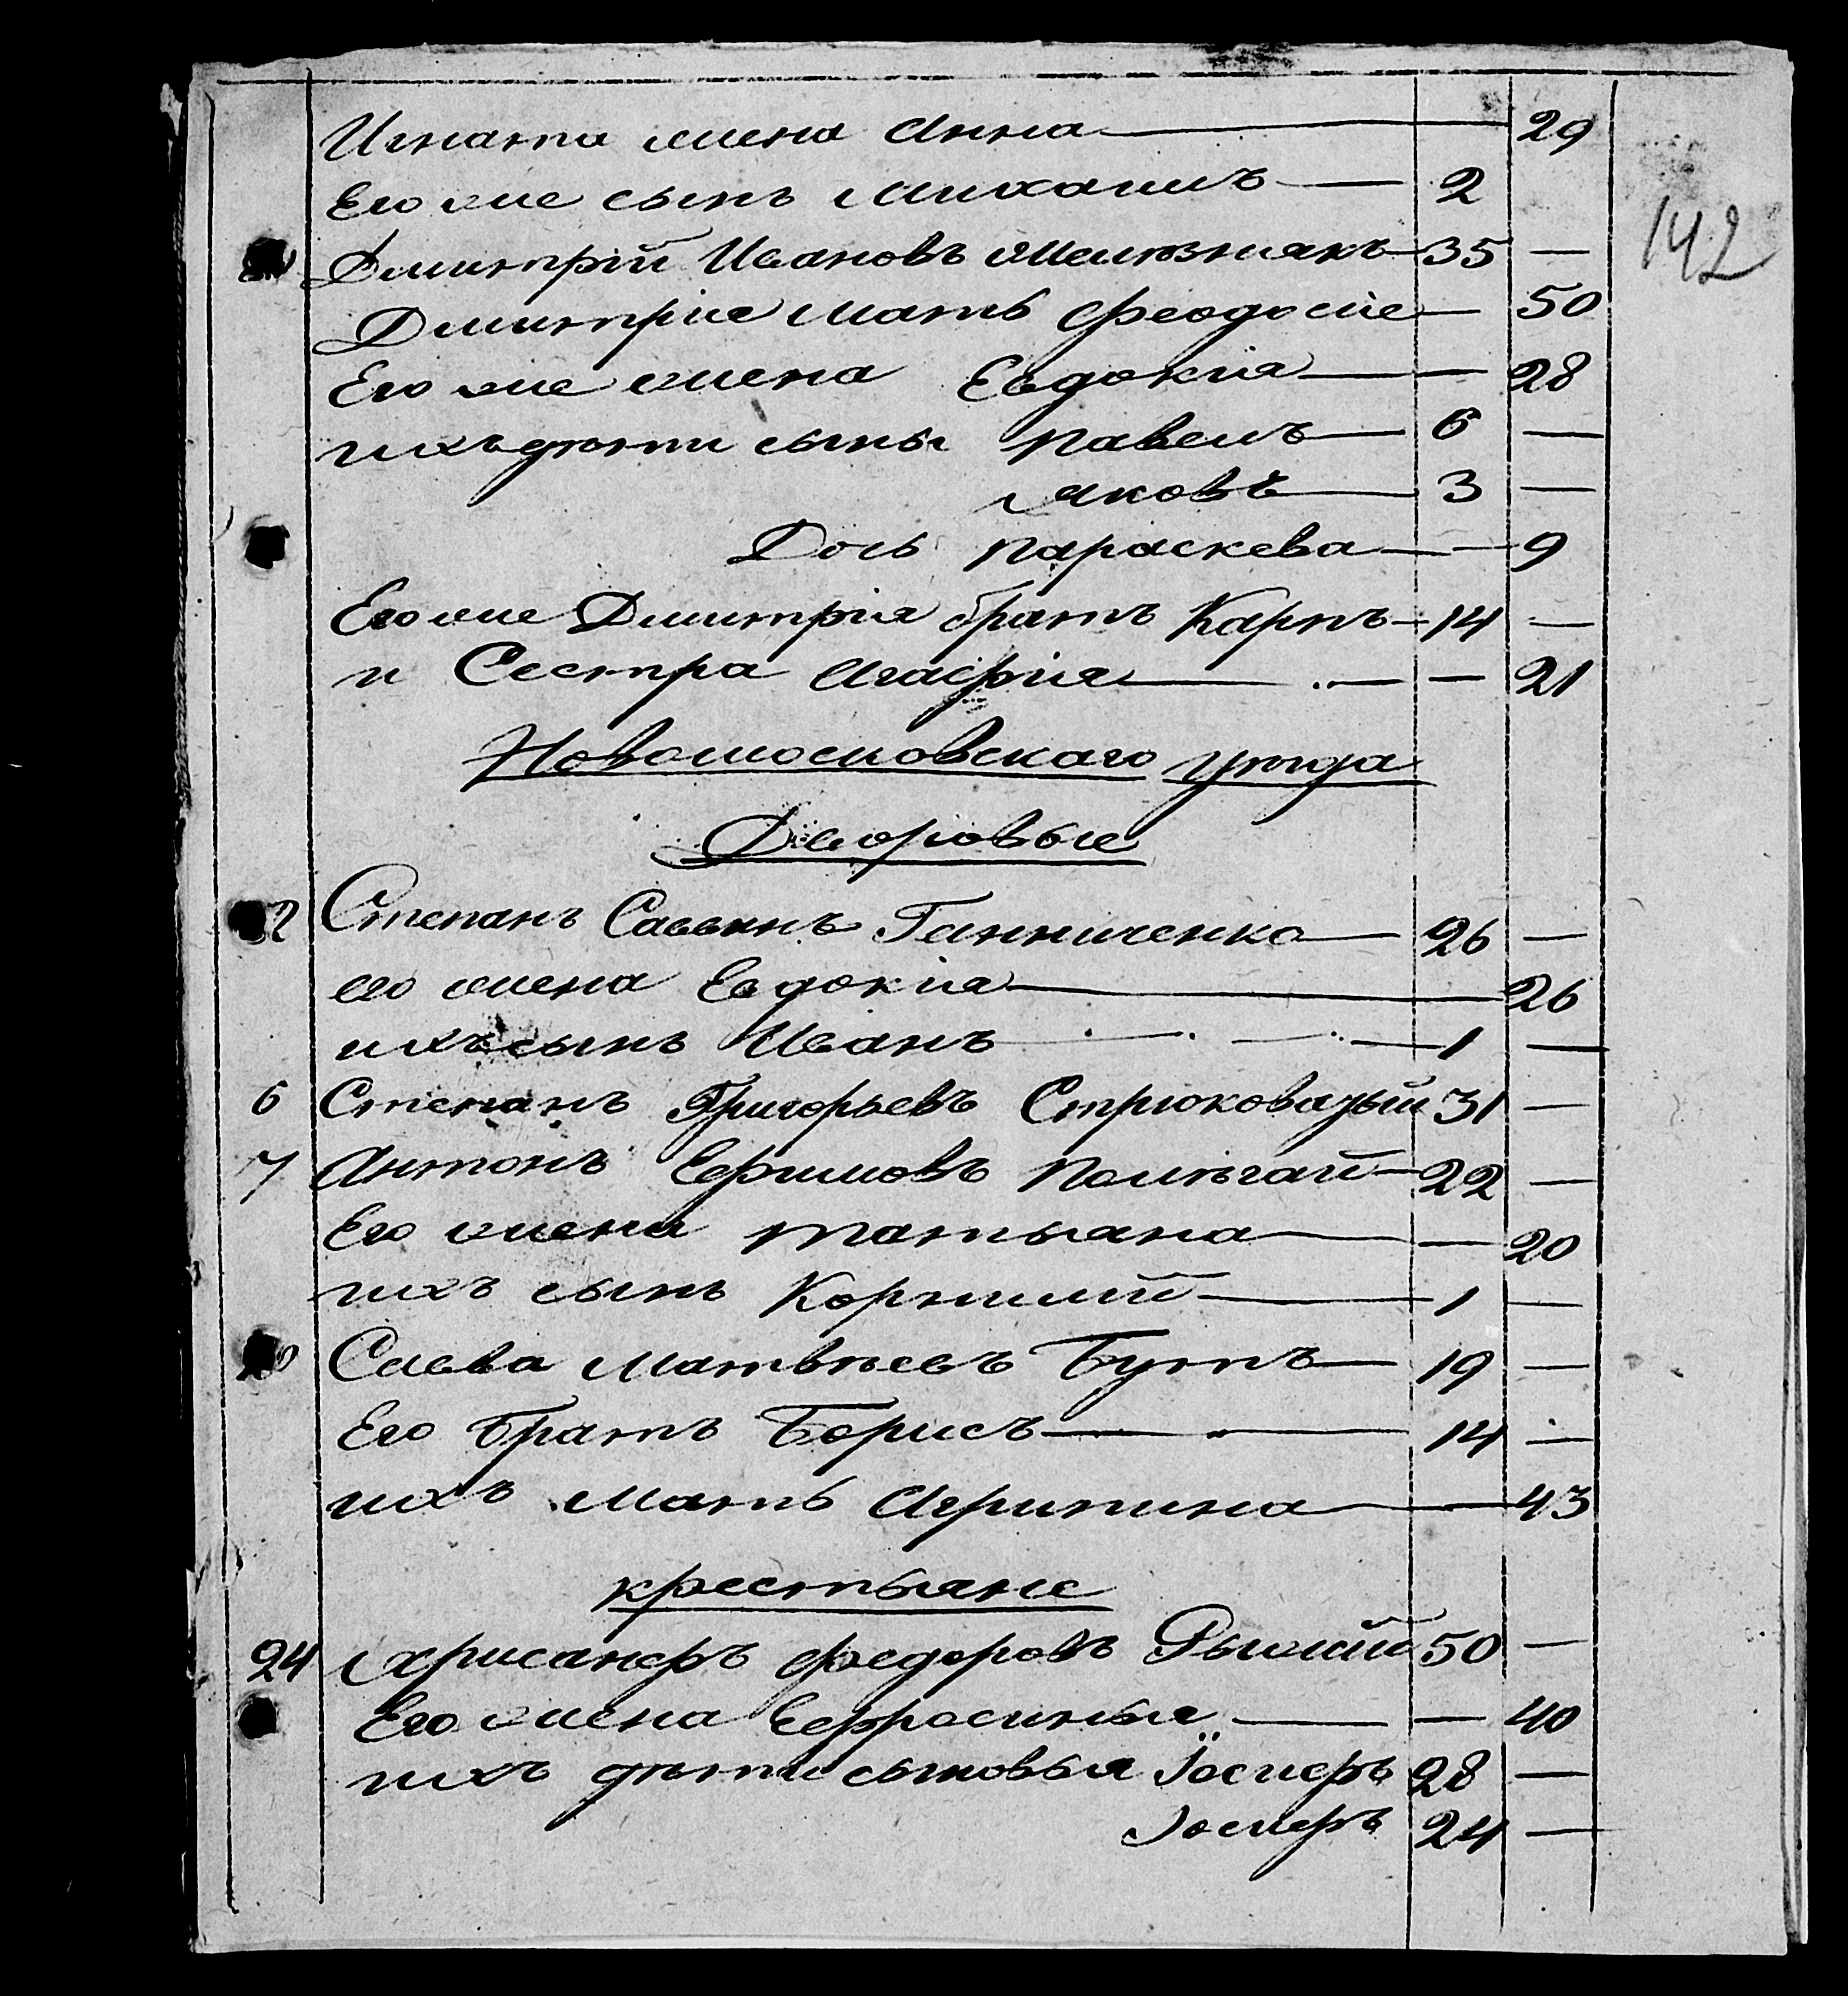 Игната жена Анна — 29
Его же сынъ Михаилъ — 2
142
Дмитрій Ивановъ Желѣзнякъ — 35 —
Дмитрія мать Феодосіе — 50
Его же жена Евдокія — — 28
ихъ дѣти сыны Павелъ — 6 —
Яковъ — 3 —
Дочь Параскева — — 9
Его же Дмитрія братъ Карпъ — 14 —
и Сестра Агафія — — 21
Новомосковскаго уѣзда
Дворовые
Степанъ Саввинъ Ганниченко — 26 —
его жена Евдокія — 26
ихъ сынъ Иванъ — 1 —
6 Степанъ Григорьевъ Стрюковатый 31 —
7 Антонъ Ефимовъ Полѣгай — 22 —
Его жена Татьяна — — 20
ихъ сынъ Корнилий — 1 —
Савва Матвѣевъ Бутъ — 19 —
Его братъ Борисъ — 14 —
ихъ мать Агрипина — 43
крестьяне
24 Хрисанфъ Федоровъ Рыжий 50 —
Его жена Ефросинья — — 40
ихъ дѣти сыновья Іосифъ 28 —
Іосифъ 24 —